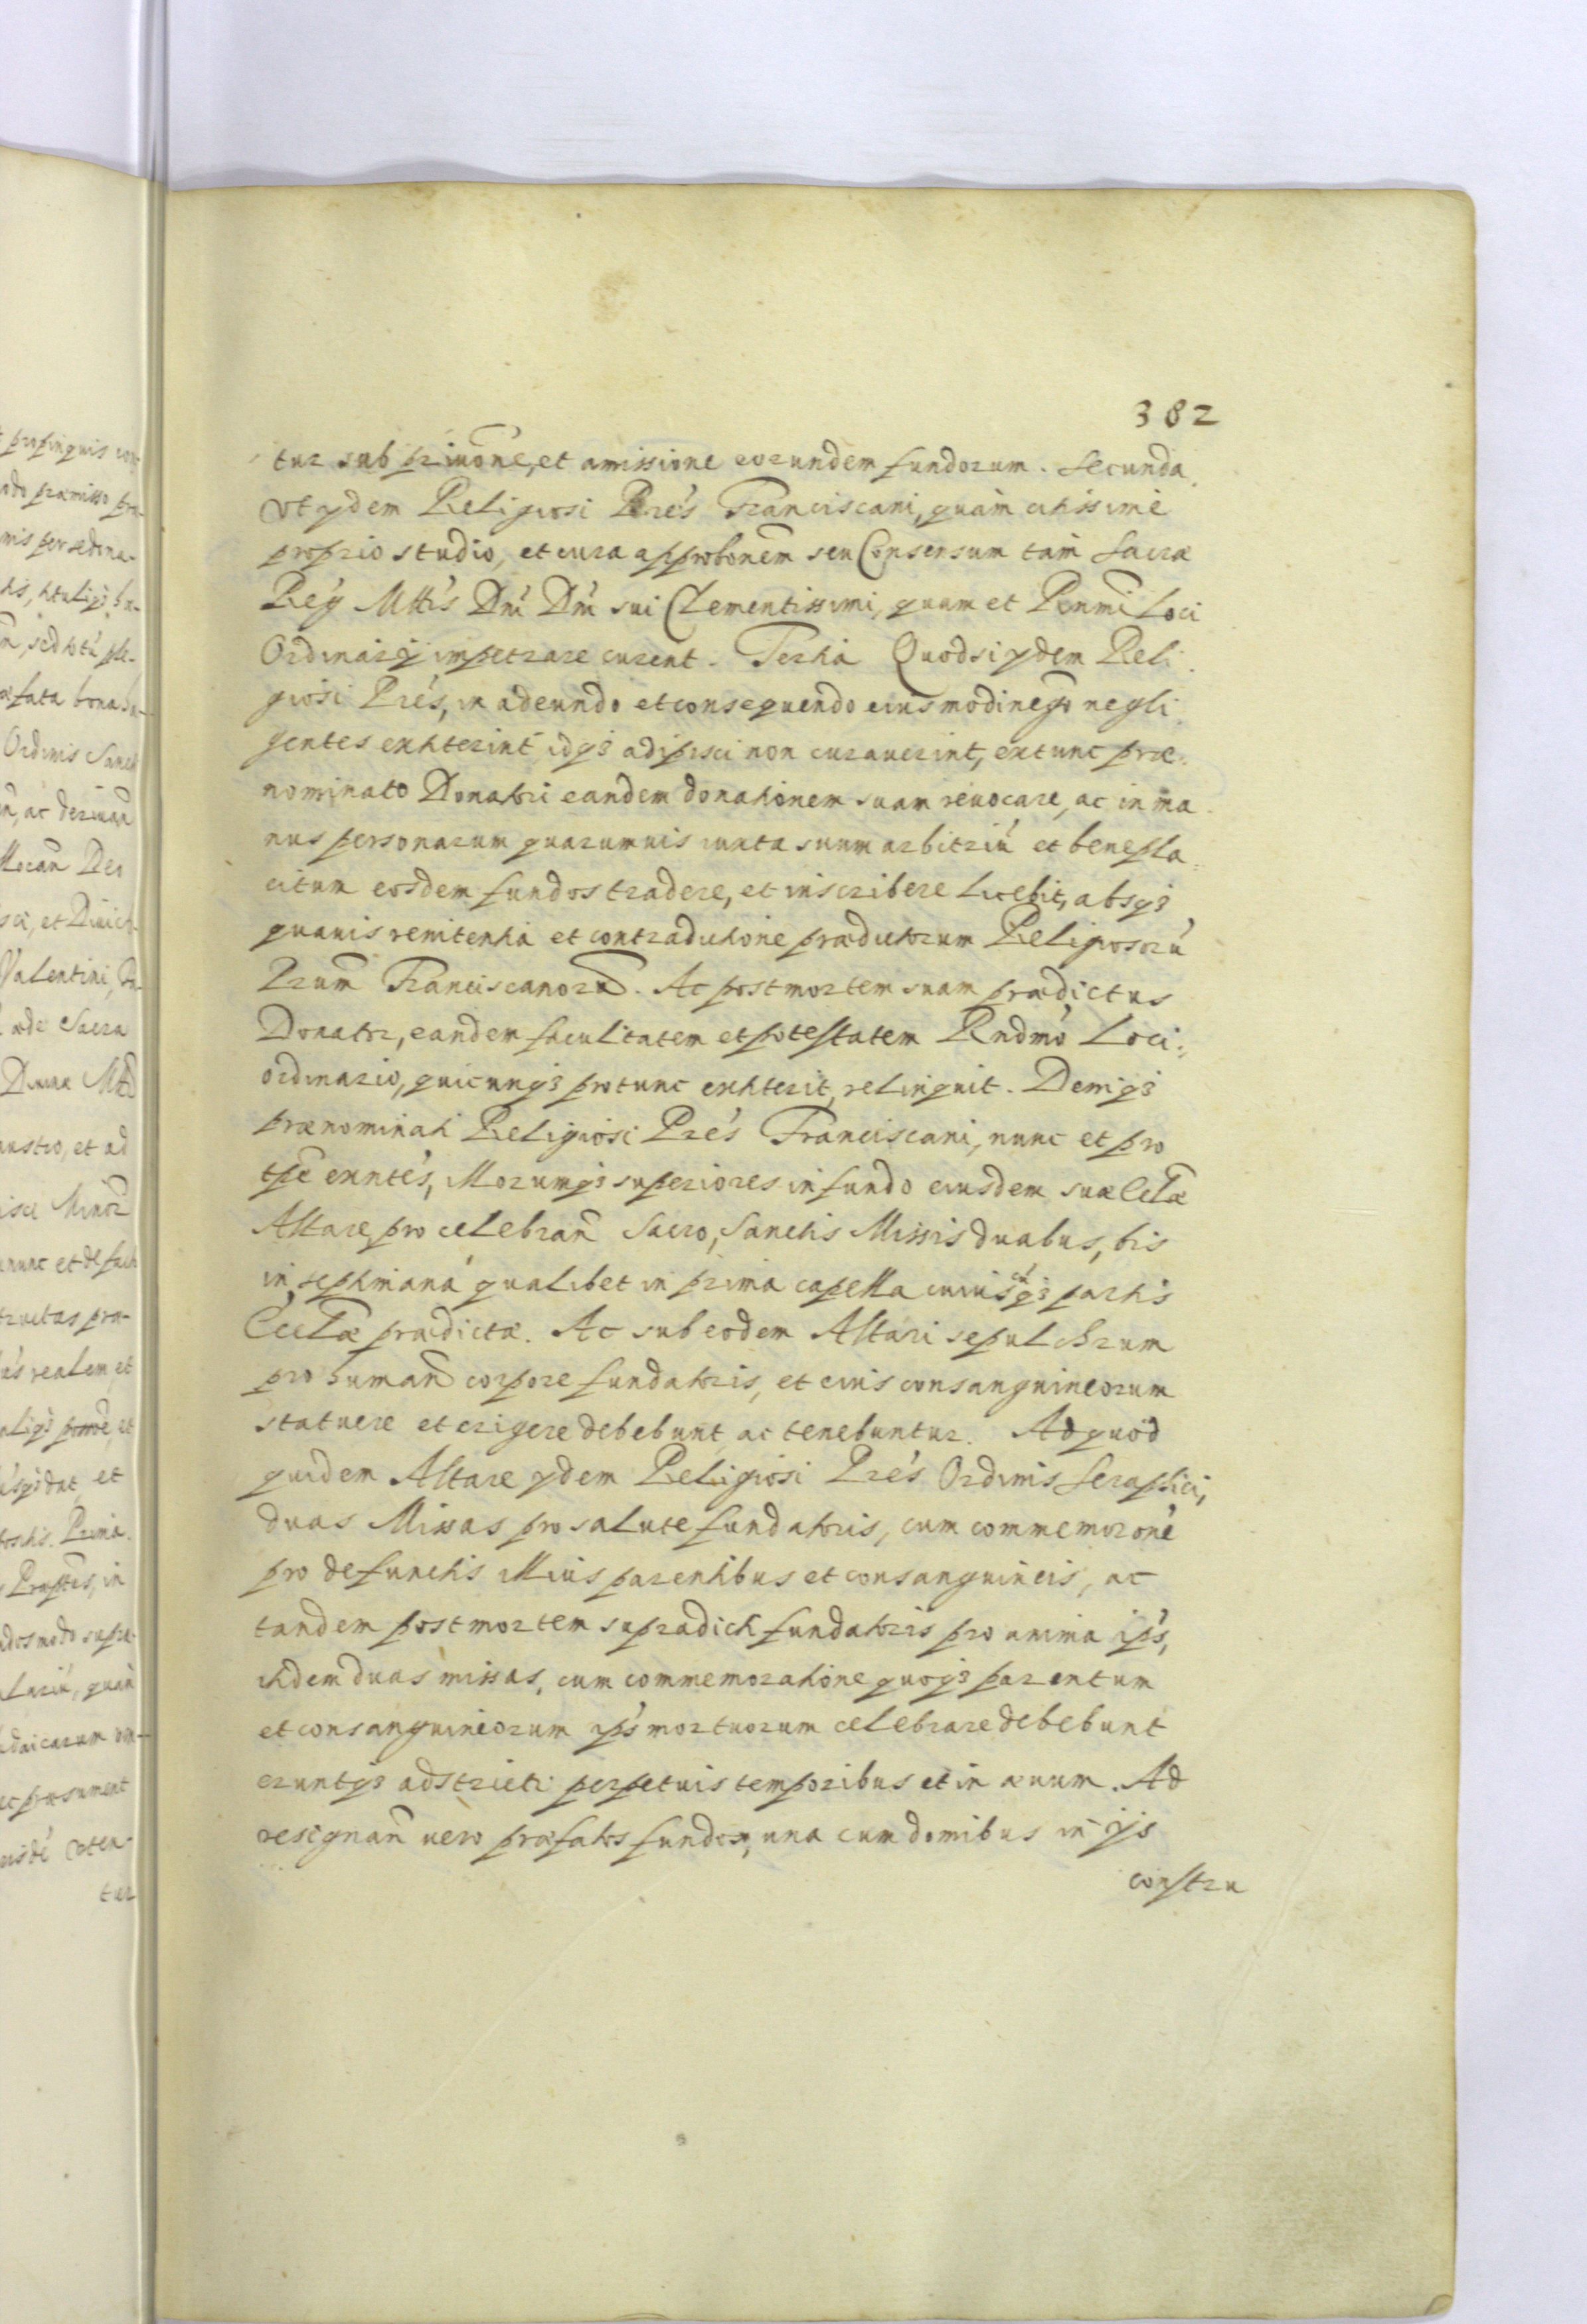 382
tur sub priuõne, et amissione eorundem fundorum. Secunda
vt ydem Religiosi Prés Franciscani, quàm citissimè
proprio studio, et cura approbonẽm seu Consensum tàm Sacræ
Rég Mttis Dnĩ Dnĩ sui Clementissimi, quam et Rnmĩ Loci
Ordinarÿ impetrare curent. Tertia Quodsi ydem Reli
giosi Prés, in adeundo et consequendo eiusmodi nego negli
gentes extiterint idq3 adipisci non curauerint, extunc præ
nominato Donatori eandem donationem suam reuocare, ac in ma
nus personarum quarumuis iuxta suum arbitriũ et benepla
citum eosdem fundos tradere, et inscribere licebit, absq3
quauis renitentia et contradictione prædictorum Religiosorũ
Prum̃ Franciscanorũ. Ac post mortem suam prædictus
Donator, eandem facultatem et potestatem Rndmo Loci
ordinario, quicunq3 protunc extiterit, relinquit. Deniq3
prænominati Religiosi Prés Franciscani, nunc et pro
tp̃e exñtes, Morumq3 superiores in fundo eiusdem suæ Eclæ̃
Altare, pro celebrañ Sacro, Sanctis Missis duabus, bis
in septimana qualibet in prima capella cuiuscũq3 partis
Ecclæ̃ prædictæ. Ac sub eodem Altari sepulchrum
pro humañ corpore fundatoris, et eius consanguineorum
statuere et erigere debebunt ac tenebuntur. Ad quòd
quidem Altare ydem Religiosi Prés Ordinis Seraphici,
duas Missas pro salute fundatoris, cum commemoronè
pro defunctis illius parentibus et consanguineis, ac
tandem post mortem supradicti fundatoris pro anima ips,
itidem duas missas, cum commemoratione quoq3 parentum
et consanguineorum ips mortuorum celebrare debebunt
eruntq3 adstricti perpetuis temporibus et in æuum. Ad
resignañ uero præfatos fundos, una cum domibus in ÿs
constru